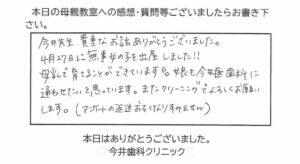 本日の母親教室への感想・質問等ございましたらお書き下
さい。
今井先生 貴重なお話ありがとうございました。
4月27日に無事女の子を出産しました!!
母乳で育てることができています。娘も今井歯科に
通わせたいと思っています。またクリーニングでよろしくお願い
します。(アンケートの返送おそくなりすみません)
本日はありがとうございました。
今井歯科クリニック